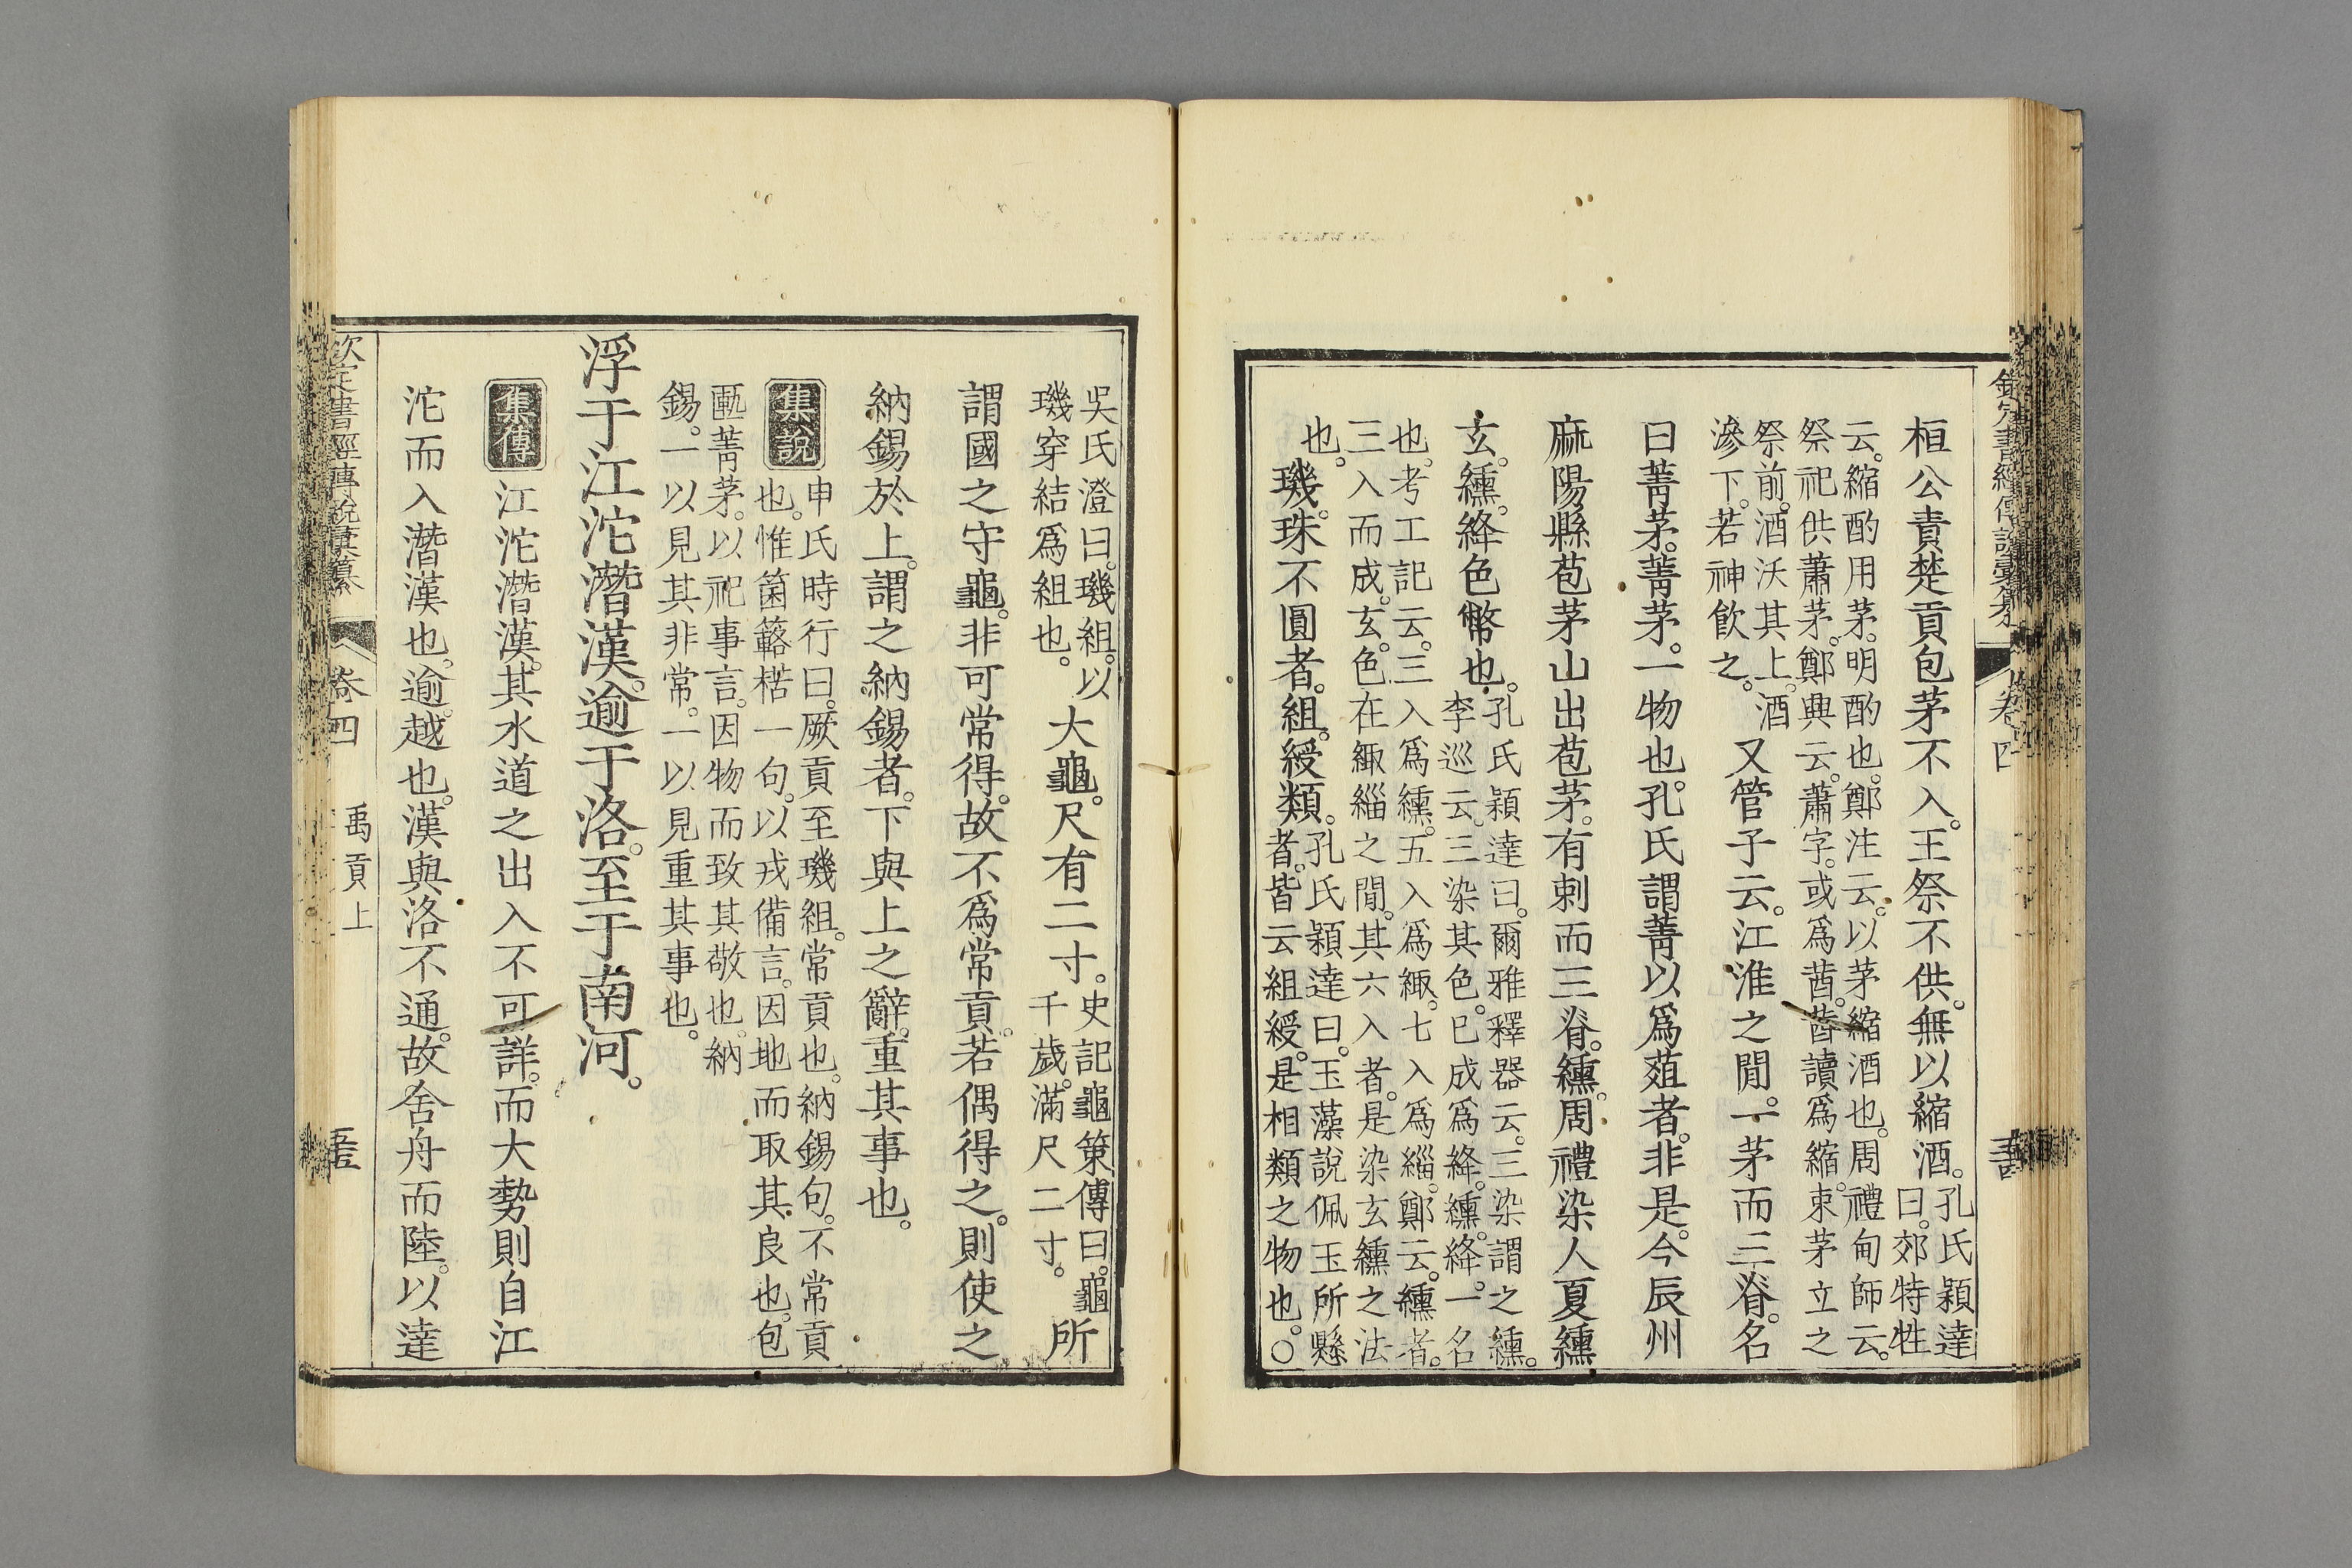 桓公責楚貢包茅不入。王祭不供。無以縮酒。孔氏穎達曰。郊特牲
云。縮酌用茅。明酌也。鄭注云。以茅縮酒也。周禮甸師云。
祭祀供蕭茅。鄭興云。蕭字。或爲莤。莤讀爲縮。束茅立之
祭前。酒沃其上。酒
滲下。若神飮之。
又管子云。江淮之閒。一茅而三脊。名
曰菁茅。菁茅。一物也。孔氏謂菁以爲葅者。非是。今辰州
麻陽縣苞茅山出苞茅。有刺而三脊。纁。周禮染人夏纁
玄。纁。絳色幣也。
孔氏穎達曰。爾雅釋器云。三染謂之纁。
李巡云。三染其色。已成爲絳。纁。絳。一名
也。考工記云。三入爲纁。五入爲緅。七入爲緇。鄭云。纁者。
三入而成。玄。色在緅緇之閒。其六入者。是染玄纁之法
也。
璣。珠不圓者。組。綬類。
孔氏穎達曰。玉藻說佩玉所懸
者。皆云組綬。是相類之物也。○
欽定書經傳說彙纂
卷四
吳氏澄曰。璣組。以
璣穿結爲組也。
大龜。尺有二寸。
史記龜筴傳曰。龜
千歲。滿尺二寸。
所
謂國之守龜。非可常得。故不爲常貢。若偶得之。則使之
納錫於上。謂之納錫者。下與上之辭。重其事也。
集說
申氏時行曰。厥貢至璣組。常貢也。納錫句。不常貢
也。惟箘簵楛一句。以戎備言。因地而取其良也。包
匭菁茅。以祀事言。因物而致其敬也。納
錫。一以見其非常。一以見重其事也。
浮于江沱潛漢。逾于洛。至于南河。
集傳
江沱潛漢。其水道之出入不可詳。而大勢則自江
沱而入潛漢也。逾。越也。漢與洛不通。故舍舟而陸。以達
欽定書經傳說彙纂
卷四
禹貢上